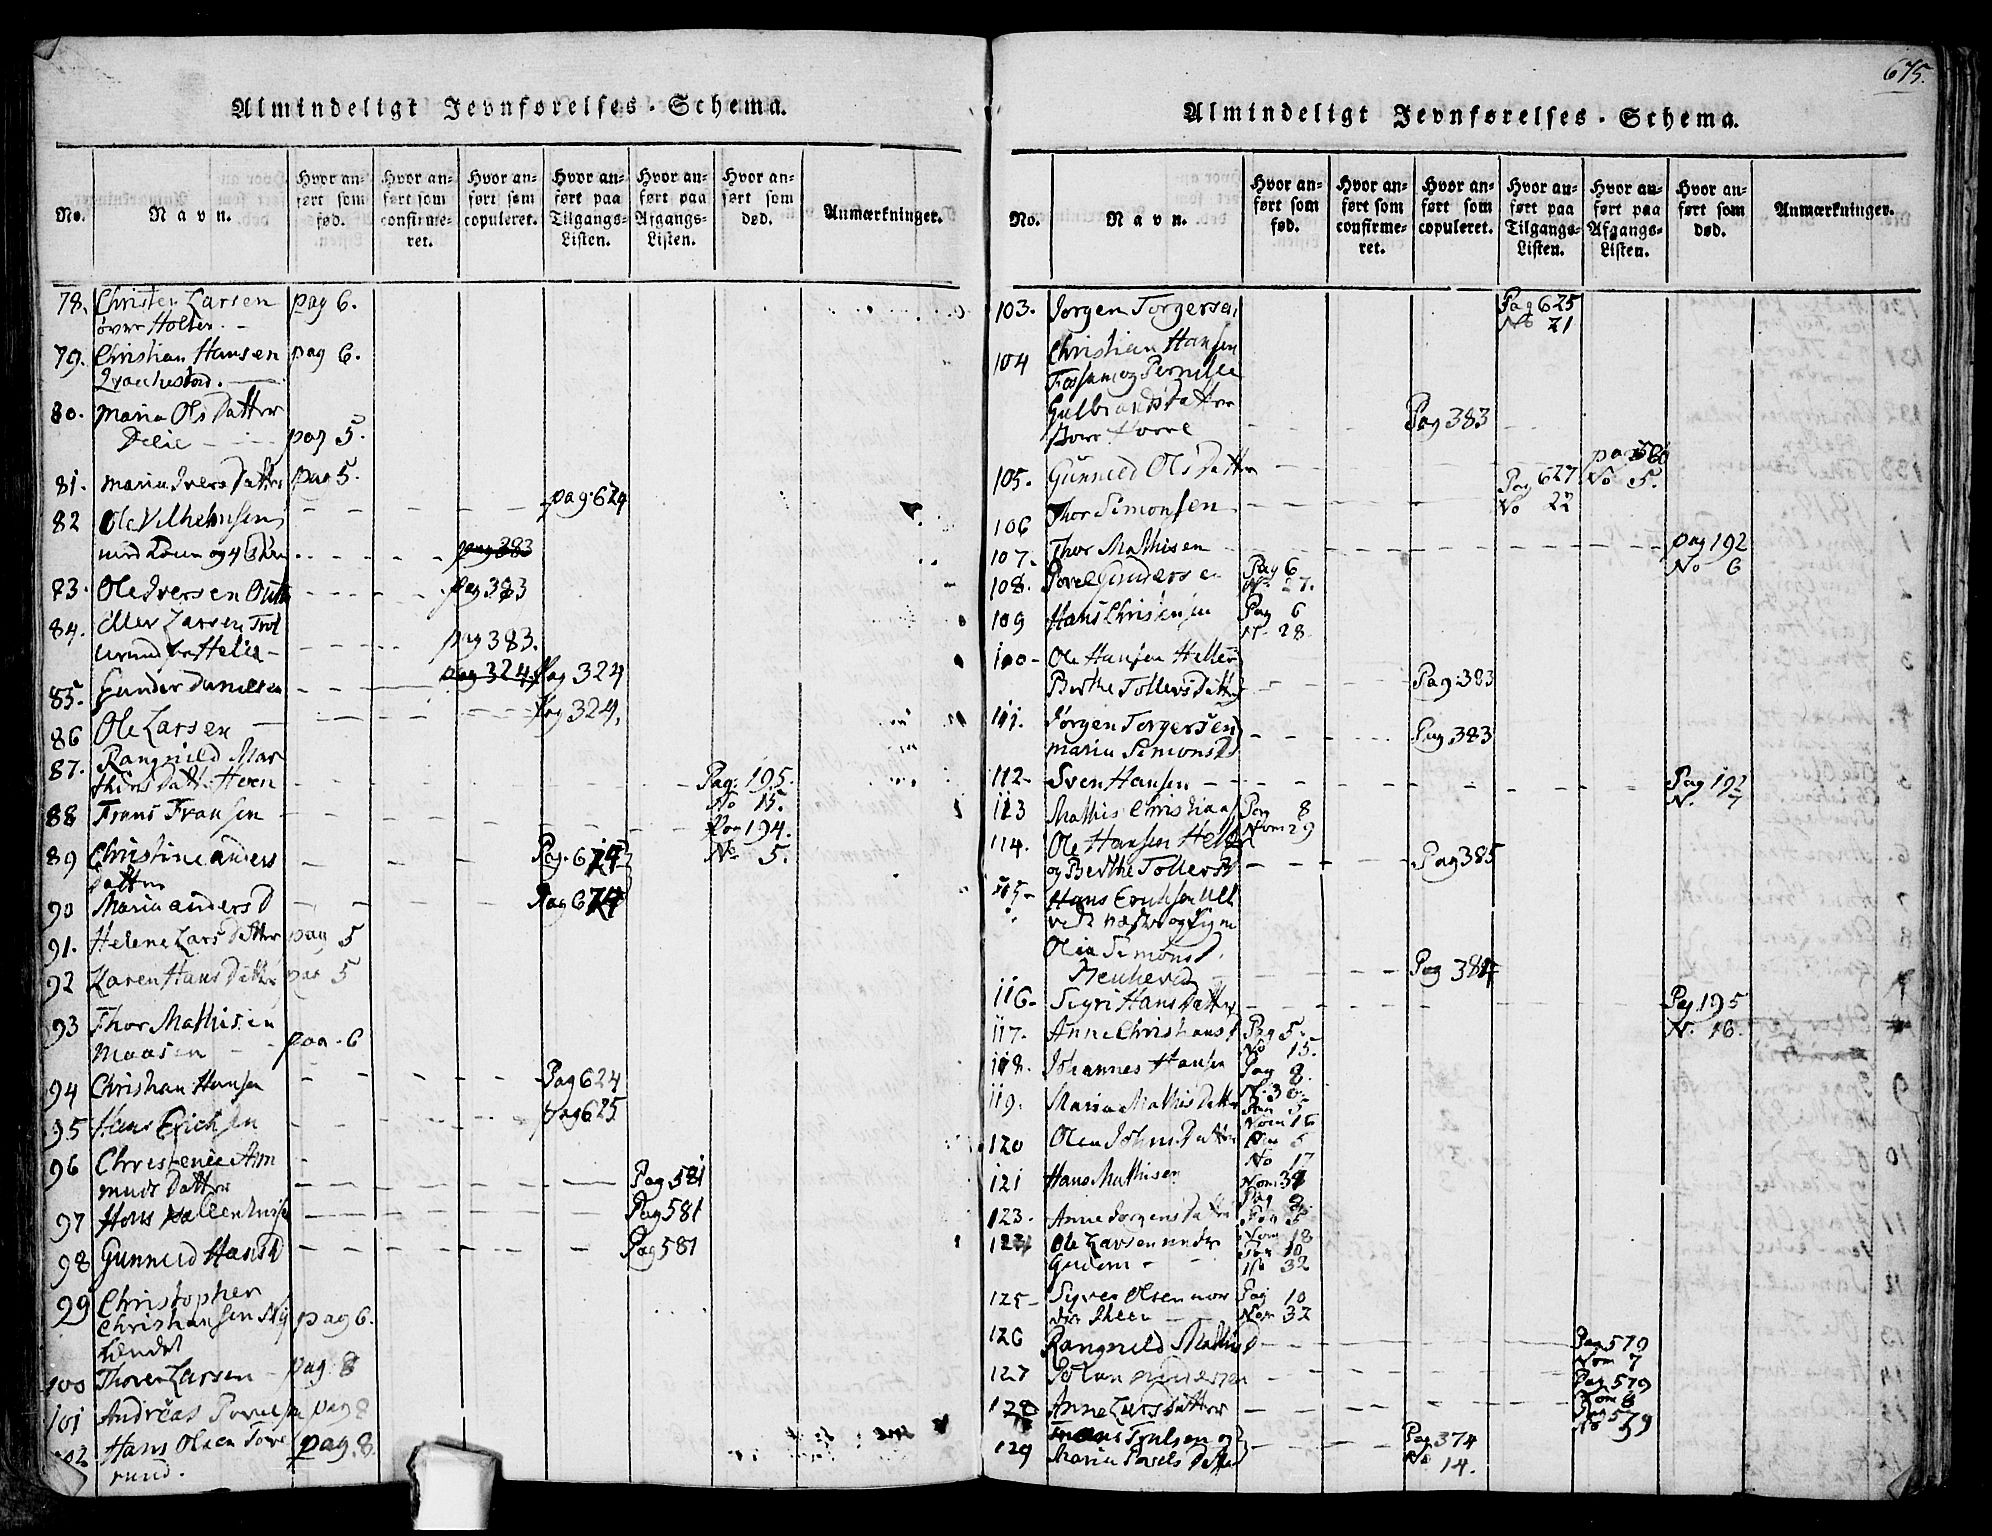 Almindeligt Jevnførelses-Schema.
No.
Navn.
Hvor anført som fød.
Hvor anført som confirmeret.
Hvor anført som copuleret.
Hvor anført paa Tilgangs-Listen.
Hvor anført paa Afgangs-Listen.
Hvor anført som død.
Anmærkninger.
78. Christen Larsen pag 6.
øvre Holter. -
79. Christian Hansen pag 6.
80. Maria Ols Datter
Delie pag 5.
81. Maria Ivers Datter pag 5.
82 Ole Vilhelmsen pag. 624
med Kone og 4 Børn pag 383
83. Ole Iversen pag 383
84. Eller Larsen
pag 383.
pag 324. Pag 324
85. Gunder Danielsen
86 Ole Larsen pag 324.
87. Rangnild Mar
thins Datt. Heen Pag. 195.
No 15.
88 Frans Fransen Pag 194.
No 5.
89 Christine anders Pag. 674
datter
90 Maria anders D Pag 674
91. Helene Lars Datter pag 5
92 Karen Hans Datter pag 5
93 Thor Mathisen
Moasen pag. 6
94 Christian Hansen Pag 624
95 Hans Erichsen pag 625
96 Christenie Am
muds Datter Pag 581
97 Hans Pag 581
98 Gunneld Hans D Pag 581
99 Christopher
Christiansen pag 6.
100 Thover Larsen - pag. 8
101 Andreas Povelsen pag 8
102 Hans Olsen Tove pag. 8.
rund.
675.
Almindeligt Jevnførelses-Schema.
No.
Navn.
Hvor anført som fød.
Hvor anført som confirmeret.
Hvor anført som copuleret.
Hvor anført paa Tilgangs-Listen.
Hvor anført paa Afgangs-Listen.
Hvor anført som død.
Anmærkninger.
103. Jørgen Torgersen Pag 625
No 21
104 Christian Hansen
Fossum og Pernille
Gulbrands datter
Pag 383
105. Gunneld Ols Datter pag 580
No 5.
106 Thor Simonsen Pag 627
No 22
107. Thor Mathisen pag 192
No 6
108. Povel Gundersen Pag 6
No 27.
109 Hans Christensen Pag 6
N. 28
110 - Ole Hansen Heller
Berthe Tollers Datter Pag. 383
111. Jørgen Torgersen
Maria Simons D Pag. 383
112 - Sven Hansen - Pag 192
N. 7
113 Mathis Christians Pag 8
Nom 29
114. Ole Hansen Heller
og Berthe Tollers D Pag 385
115 - Hans Eriksen
Olia Simons D.
Pag 384
116. Sigri Hans Datter Pag. 195
N. 16.
117. Anne Christians D Pag 5.
No 15.
118. Johannes Hansen Pag 8.
N. 30
119. Maria Mathis Datter Pag 5
Nom 16
120 Olea Johns Datter Pag 5
No 17
121 Hans Mathisen Nom 31
Pag 9
123. Anne Jorgens Datter Pag 5
Nom 18
124 Ole Larsen nedre Pag 10
Gudem - No 32
125 - Syver Olsen nor Pag 10
dre Skeen Nom 32
126 Rangnild Mathis D Pag 579
Nom 7
127 Pag 579
Nom 8
128 Anne Lars Datter Pag 579
No 9
129 Frans Trulsen og Pag 374
Maria Povels Datter No 14.